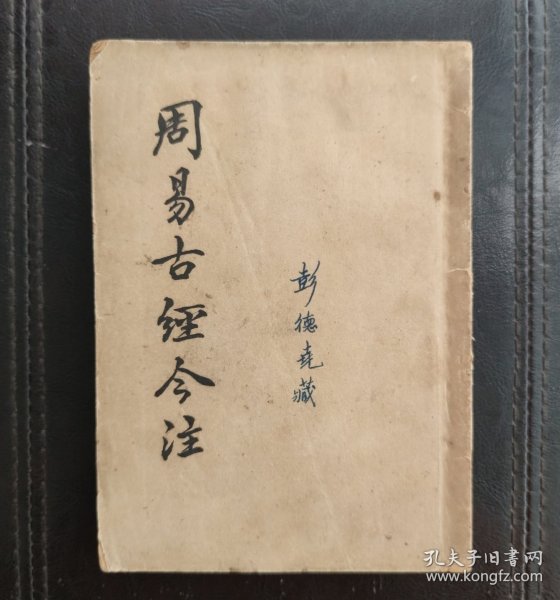 周易古經今注
彭德堯藏
孔夫子旧书网
www.kongfz.com